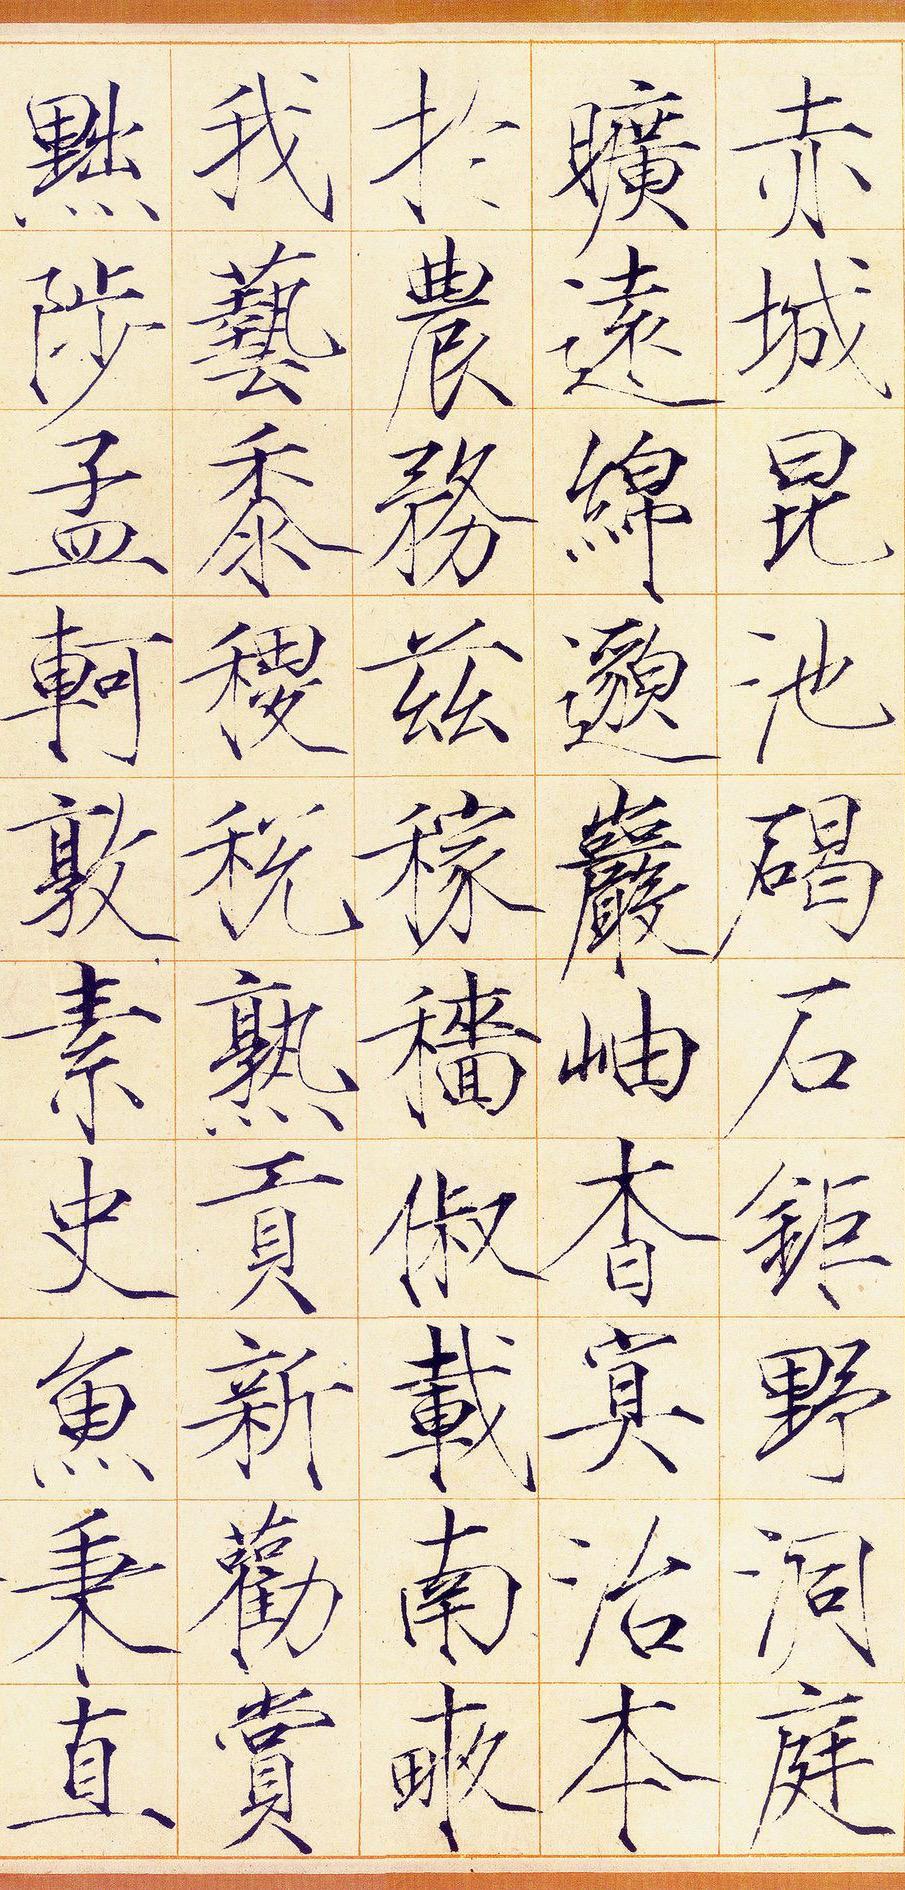 赤城昆池碣石鉅野洞庭
曠遠綿邈巖岫杳冥治本
於農務茲稼穡俶載南畝
我藝黍稷稅熟貢新勸賞
黜陟孟軻敦素史魚秉直